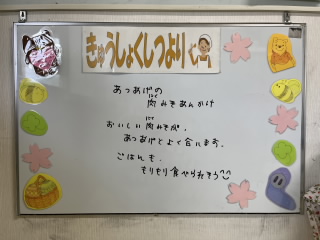 きゅうしょくしつより
あつあげの
肉みそあんかけ
おいしい肉みそが、
あつあげとよく合います。
ごはんも、
もりもり食べられそう